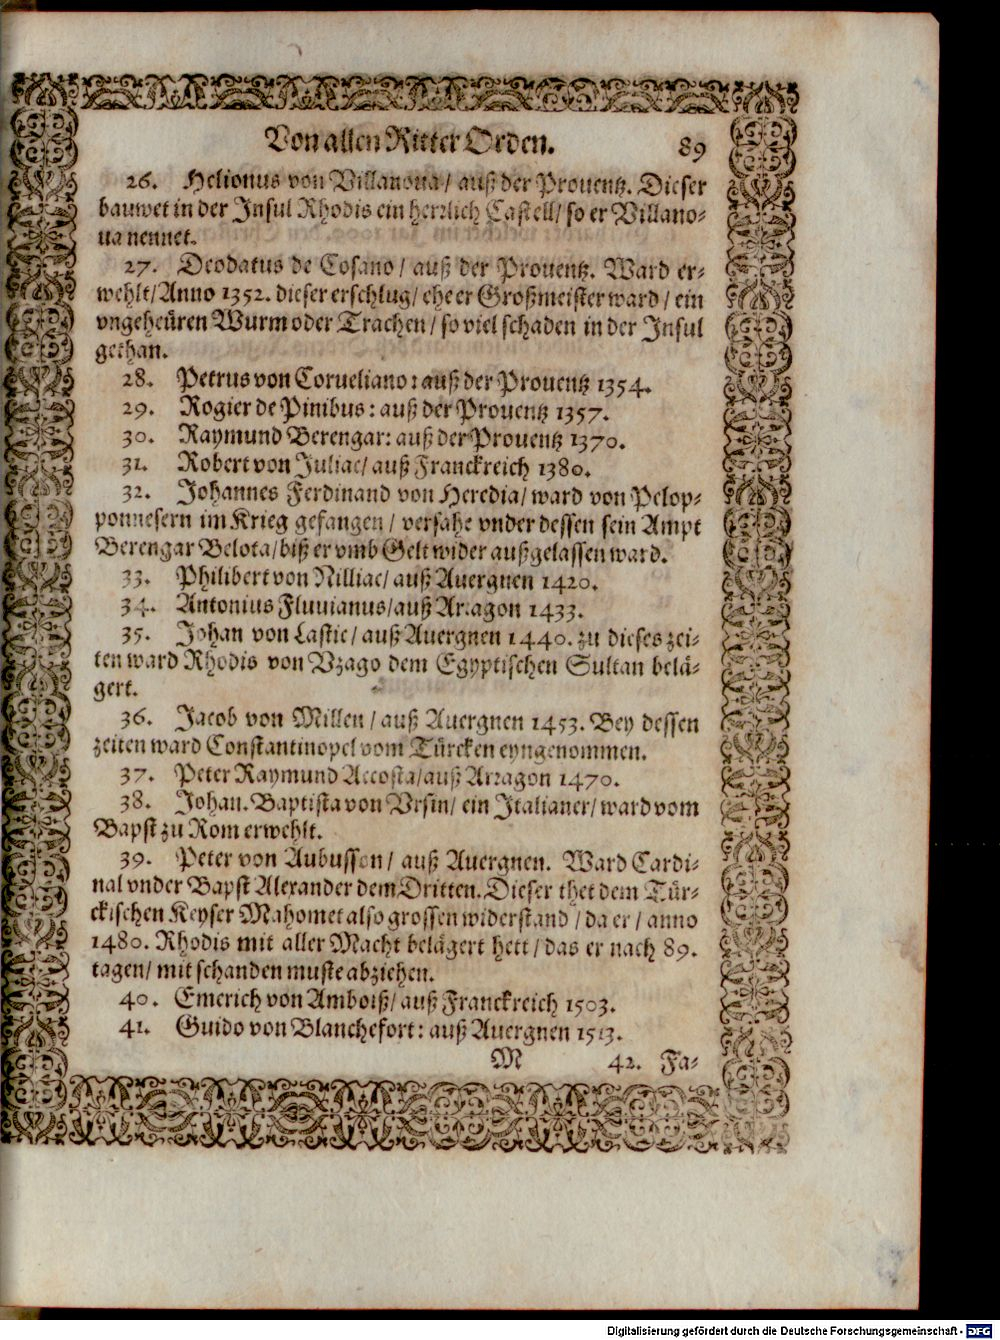 Von allen Ritter Orden. 89
26. Helionus von Villanoua / auß der Prouentz. Dieser
bauwet in der Insul Rhodis ein herrlich Castell / so er Villano-
ua nennet.
27. Deodatus de Cosano / auß der Prouentz. Ward er-
wehlt / Anno 1352. dieser erschlug / ehe er Großmeister ward / ein
vngeheüren Wurm oder Trachen / so viel schaden in der Insul
gethan.
28. Petrus von Corueliano: auß der Prouentz 1354.
29. Rogier de Pinibus: auß der Prouentz 1357.
30. Raymund Berengar: auß der Prouentz 1370.
31. Robert von Juliac / auß Franckreich 1380.
32. Johannes Ferdinand von Heredia / ward von Pelop-
ponnesern im Krieg gefangen / versahe vnder dessen sein Ampt
Berengar Belota / biß er vmb Gelt wider außgelassen ward.
33. Philibert von Nilliac / auß Auergnen 1420.
34. Antonius Fluuianus / auß Arragon 1433.
35. Johan von Lastic / auß Auergnen 1440. zu dieses zei-
ten ward Rhodis von Vzago dem Egyptischen Sultan belä-
gert.
36. Jacob von Millen / auß Auergnen 1453. Bey dessen
zeiten ward Constantinopel vom Türcken eyngenommen.
37. Peter Raymund Accosta / auß Arragon 1470.
38. Johan. Baptista von Vrsin / ein Italianer / ward vom
Bapst zu Rom erwehlt.
39. Peter von Aubusson / auß Auergnen. Ward Cardi-
nal vnder Bapst Alexander dem Dritten. Dieser thet dem Tür-
ckischen Keyser Mahomet also grossen widerstand / da er / anno
1480. Rhodis mit aller Macht belägert hett / das er nach 89.
tagen / mit schanden muste abziehen.
40. Emerich von Amboiß / auß Franckreich 1503.
41. Guido von Blanchefort: auß Auergnen 1513.
M 42. Fa-
Digitalisierung gefördert durch die Deutsche Forschungsgemeinschaft - DFG